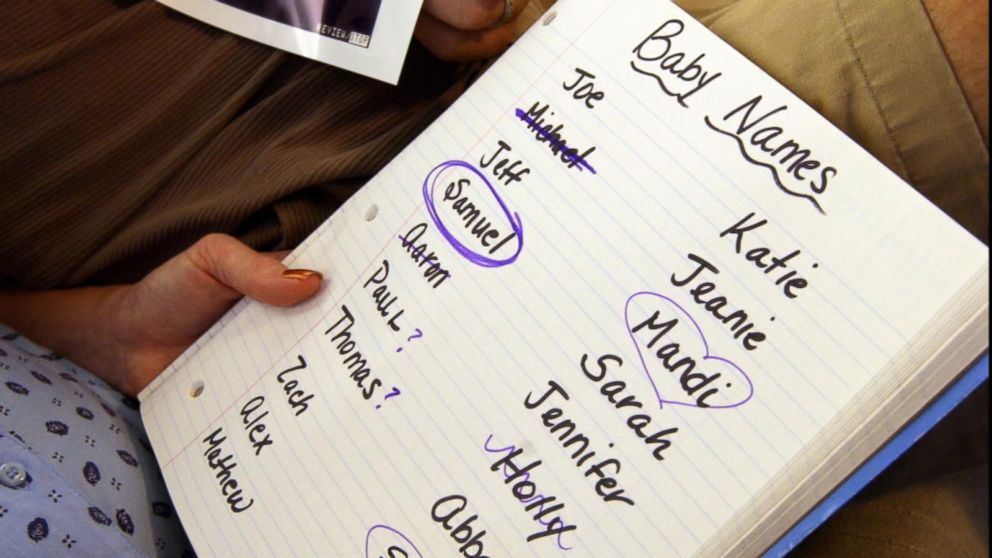 Baby Names
Joe
Michael
Jeff
Samuel
Aaron
Paul?
Thomas?
Zach
Alex
Mathew
Katie
Jeanie
Mandi
Sarah
Jennifer
Holly
Abb
S
REVIEW/STOR